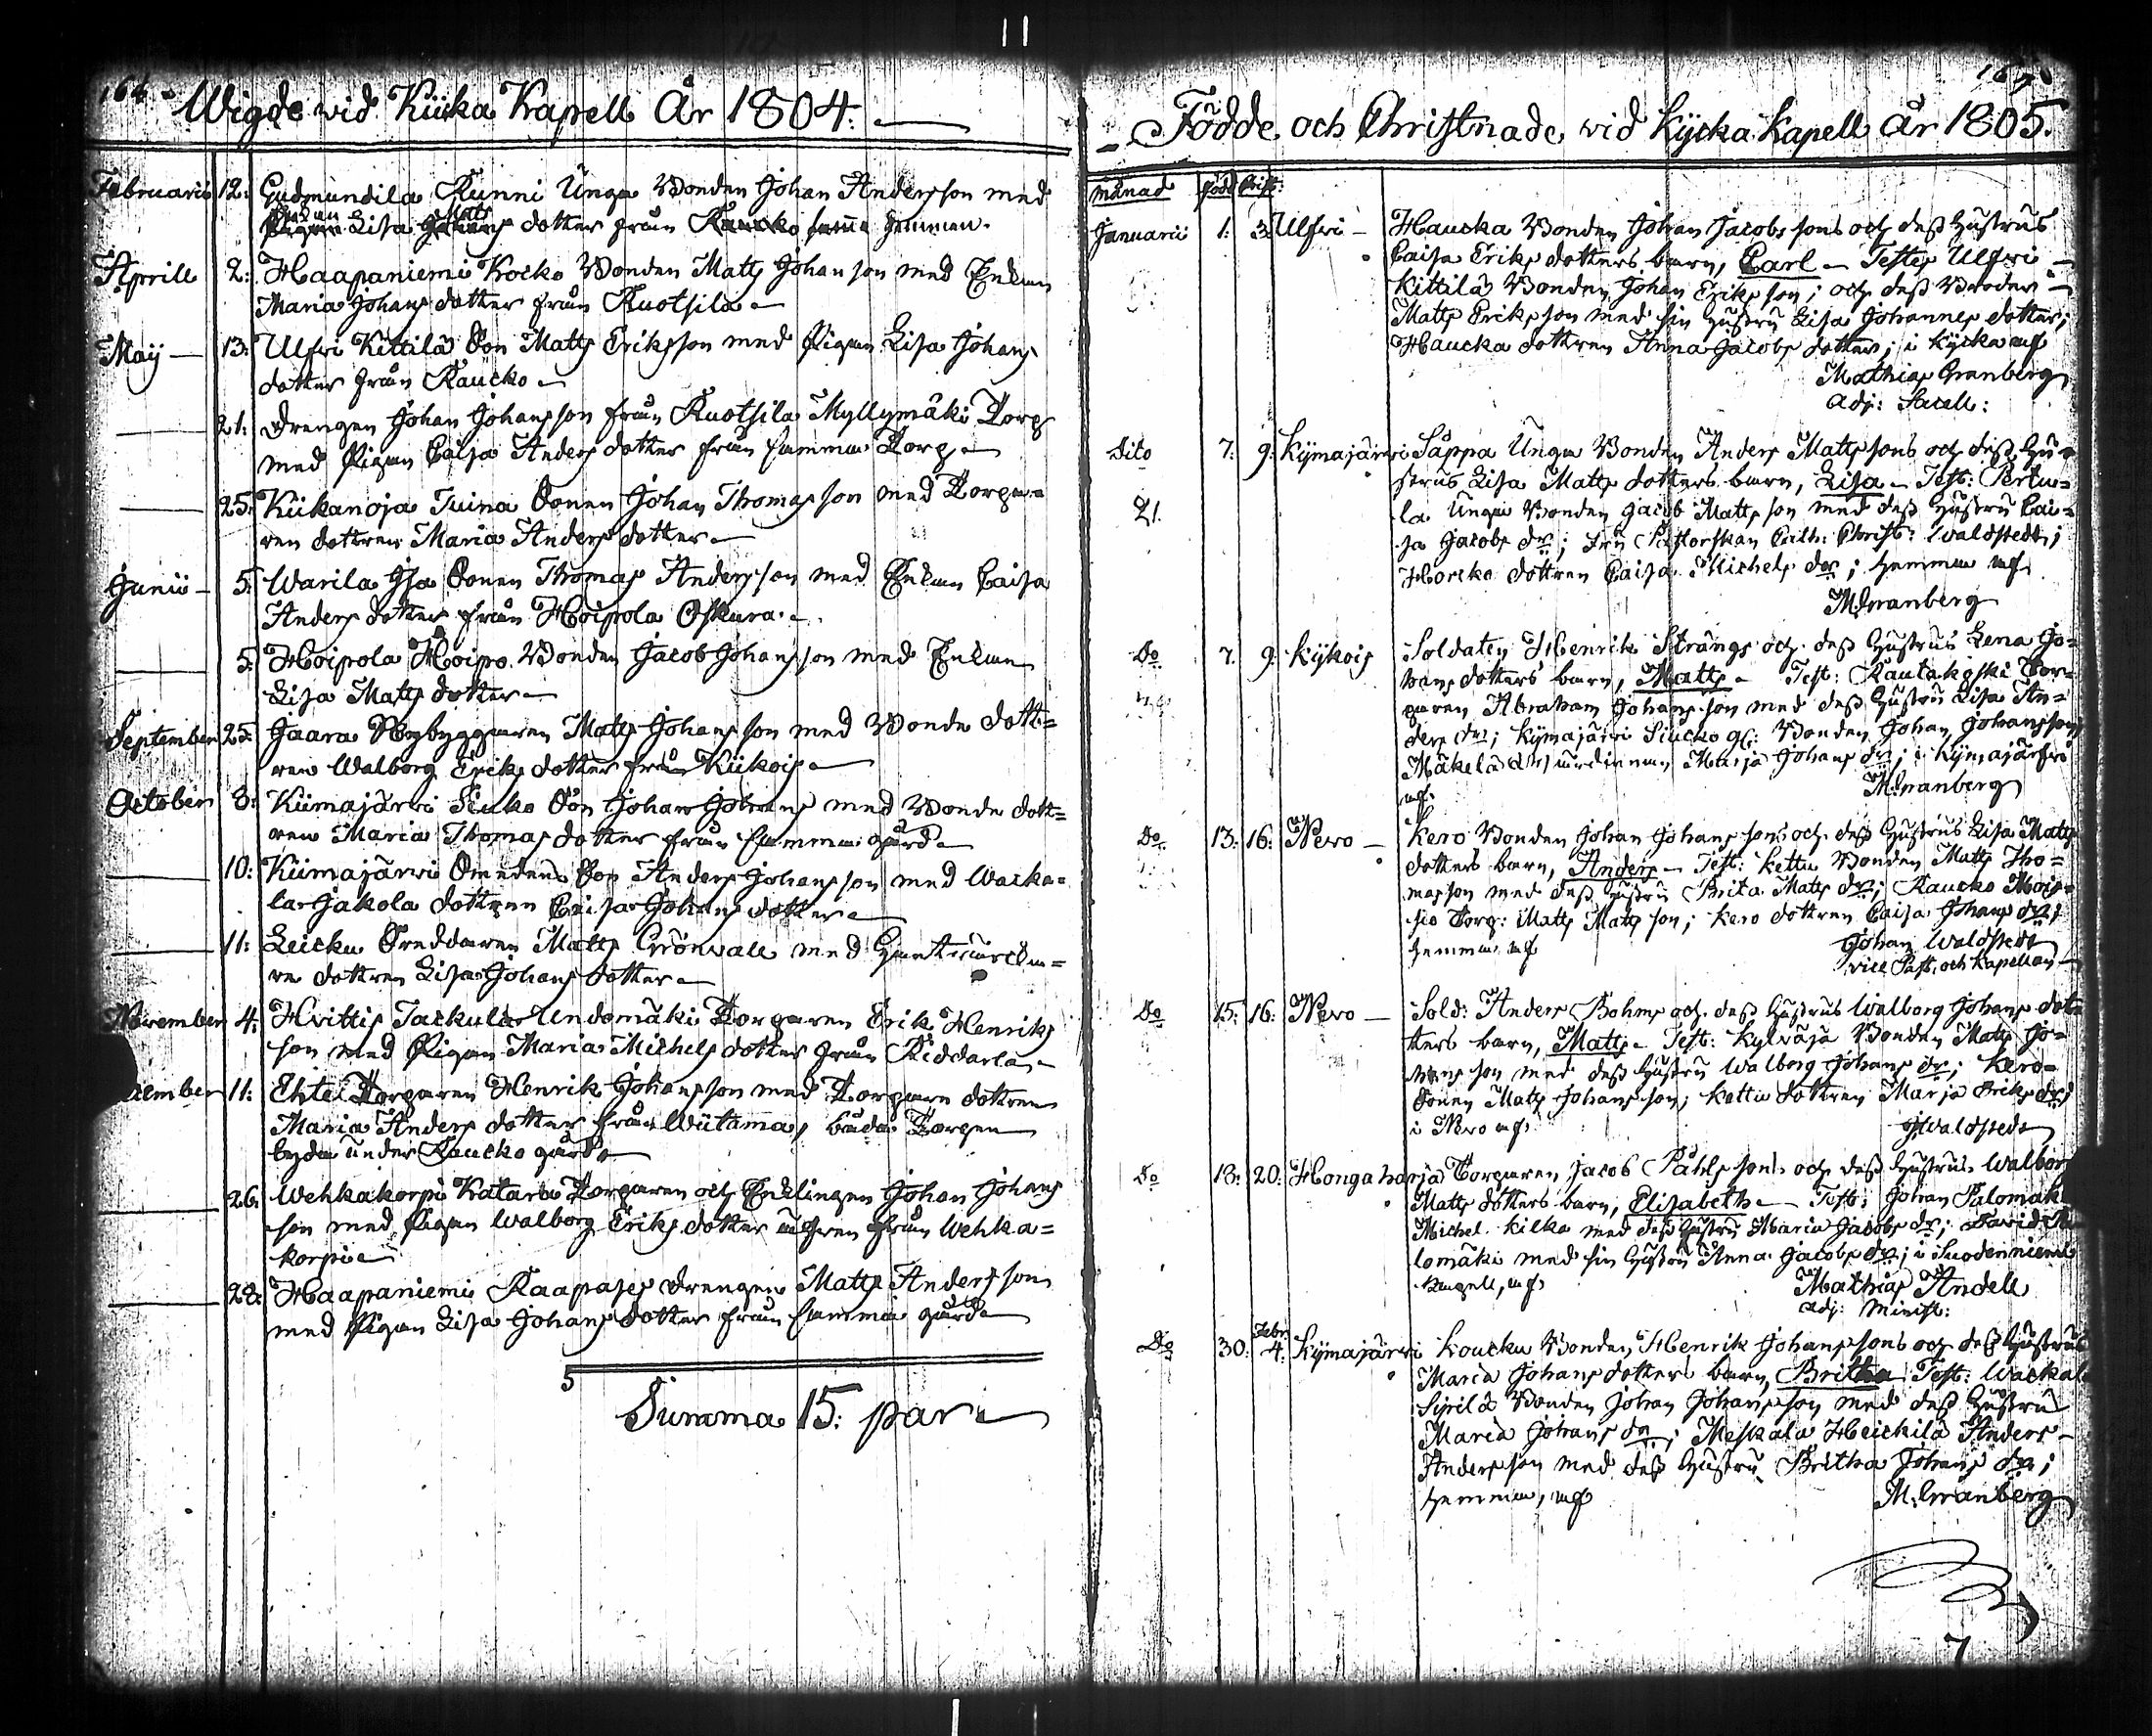 164
Wigde vid Kiika Kapell År 1804.
Februarii 12: Gudmundila Kunni Unga Bonden Johan Andersson med
Enkan Lisa Matts dotter från Raucko samma hemman.
Aprill 2: Haapaniemi Kocko Bonden Matts Johanson med Enkan
Maria Johans dotter från Ruotsila
Maij 13: Ulfvi Kittilä Son Matts Eriksson med Pigan Lisa Johans
dotter från Raucko
21: Drengen Johan Johansson från Ruotsila Myllymäki Torp
med Pigan Caisa Anders dotter från samma Torp
25: Kiikanoja Tuina Sonen Johan Thomasson med Torpa-
ren dottren Maria Anders dotter
Junii 5: Warila Isa Sonen Thomas Andersson med Enkan Caisa
Anders dotter från Hoipola Oskura.
5: Hoipola Hoipo Bonden Jacob Johansson med Enkan
Lisa Matts dotter
September 25: Jaara Nybyggaren Matts Johansson med Bonde dott-
ren Walborg Eriks dotter från Kiikois
October 8: Kiimajärvi Siuko Son Johan Johans med Bonde dott-
ren Maria Thomas dotter från samma gård
10: Kiimajärvi Smedens Son Anders Johansson med Wacka-
la Jakola dottren Caisa Johans dotter
11: Leicku Skreddaren Matts Grönvall med
re dottren Lisa Johans dotter
November 4: Hvittis Tackula Undomäki Torparen Erik Henriks
son med Pigan Maria Michels dotter från Riddarla
11: Ehte Torparen Henrik Johansson med Torpare dottren
Maria Anders dotter från Wiitama, båda Torpen
lyda under Raucko gård
26: Wehkakorpi Katara Torparen och Enklingen Johan Johans
son med Pigan Walborg Eriks dotter från Wehka-
korpi
28: Haapaniemi Raapases drengen Matts Andersson
med Pigan Lisa Johans dotter från samma gård
Summa 15: par
Födde och Christnade vid Kycka Kapell år 1805.
månad född Crist:
Januarii 1: 3: Ulfvi Haucka Bonden Johan Jacobssons och dess hustrus
Caisa Eriks dotters barn, Carl Testes Ulfvi
Kittilä Bonden Johan Eriksson; och dess Broder
Matts Eriksson med sin hustru Lisa Johannes dotter;
Haucka dottren Anna Jacobs dotter; i Kycka
Mathias Granberg
adj: Sacell:
Dito 7: 9: Kijmajärvi Säppa Unga Bonden Anders Mattssons och dess hu-
strus Lisa Matts dotters barn, Lisa Test: Pertu-
21. la Unga Bonden Jacob Mattsson med dess hustru Cai-
sa Jacobs dr; Fru Pastorskan Cath: Christ: Waldstedt;
Horcko dottren Caisa Michels dr; hemma
M: Granberg
Do 7. 9. Kijkois Soldaten Henrik Strångs och dess hustrus Lena Jo-
hans dotters barn, Matts Test: Rautakoski Tor-
paren Abraham Johansson med dess hustru Lisa An-
ders dr; Kijmajärvi Siucko Bonden Johan Johansson
Mäkelä Marja Johans dr; i Kijmajärfvi
M: Granberg
Do 13: 16: Nero Kero Bonden Johan Johanssons och dess hustrus Lisa Matts
dotters barn, Anders Test: Kettu Bonden Matts Tho-
masson med dess hustru Brita Matts dr; Raucko Mois-
sio Torp: Matts Mattsson; Kero dottren Caisa Johans dr;
hemma Johan Waldstedt
vice Past: och Kapellan
Do 15: 16: Nero Sold: Anders Bohms och dess hustrus Walborg Johans dot-
ters barn, Matts Test: Kylväjä Bonden Matts Jo-
hansson med dess hustru Walborg Johans dr; Kero
Sonen Matts Johansson; Kettu dottren Marja Eriks dr;
i Nero J: Waldstedt
Do 18: 20: Hongaharja Torparen Jacob Påhlssons och dess hustrus Walborg
Matts dotters barn, Elisabeth Test: Johan Palomäki
Michel Kilka med dess hustru Maria Jacobs dr; David Pa
lomäki med sin hustru Anna Jacobs dr; i Suodenniemi
Capell, Mathias Andell
adj: Minist:
Do 30: Febr: 4: Kijmajärvi Koucku Bonden Henrik Johanssons och dess hustrus
Maria Johans dotters barn, Britha Test: Wackala
Sipilä Bonden Johan Johansson med dess hustru
Maria Johans dr; Meskala Heickilä Anders
Andersson med dess hustru Britha Johans dr;
hemma, M: Granberg